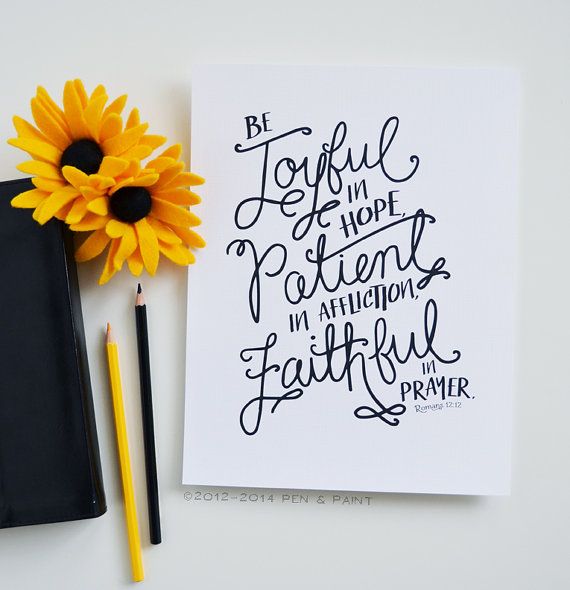 BE
Joyful
IN
HOPE,
Patient
IN AFFLICTION,
Faithful
IN
PRAYER.
Romans 12:12
©2012-2014 PEN & PAINT